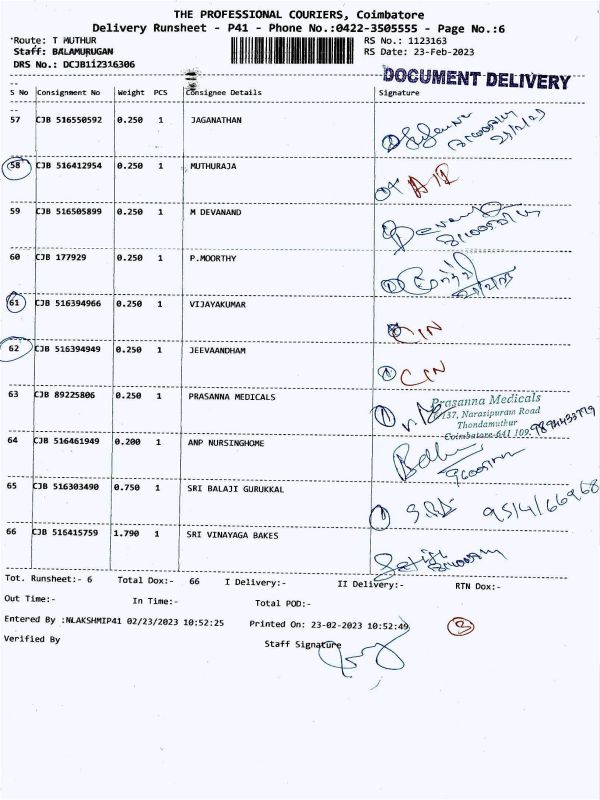 THE PROFESSIONAL COURIERS, Coimbatore
Delivery Runsheet - P41 - Phone No.:0422-3505555 - Page No.:6
Route: T MUTHUR RS No.: 1123163
Staff: BALAMURUGAN RS Date: 23-Feb-2023
DRS No.: DCJB112316306
DOCUMENT DELIVERY
S No Consignment No Weight PCS Consignee Details Signature
57 CJB 516550592 0.250 1 JAGANATHAN
58 CJB 516412954 0.250 1 MUTHURAJA
59 CJB 516505899 0.250 1 M DEVANAND
60 CJB 177929 0.250 1 P.MOORTHY
61 CJB 516394966 0.250 1 VIJAYAKUMAR CIN
62 CJB 516394949 0.250 1 JEEVAANDHAM CIN
63 CJB 89225806 0.250 1 PRASANNA MEDICALS
Prasanna Medicals
137, Narasipuram Road
Thondamuthur
Coimbatore-641 109
64 CJB 516461949 0.200 1 ANP NURSINGHOME
65 CJB 516303490 0.750 1 SRI BALAJI GURUKKAL
66 CJB 516415759 1.790 1 SRI VINAYAGA BAKES
Tot. Runsheet:- 6 Total Dox:- 66 I Delivery:- II Delivery:- RTN Dox:-
Out Time:- In Time:- Total POD:-
Entered By :NLAKSHMIP41 02/23/2023 10:52:25 Printed On: 23-02-2023 10:52:49 3
Verified By Staff Signature